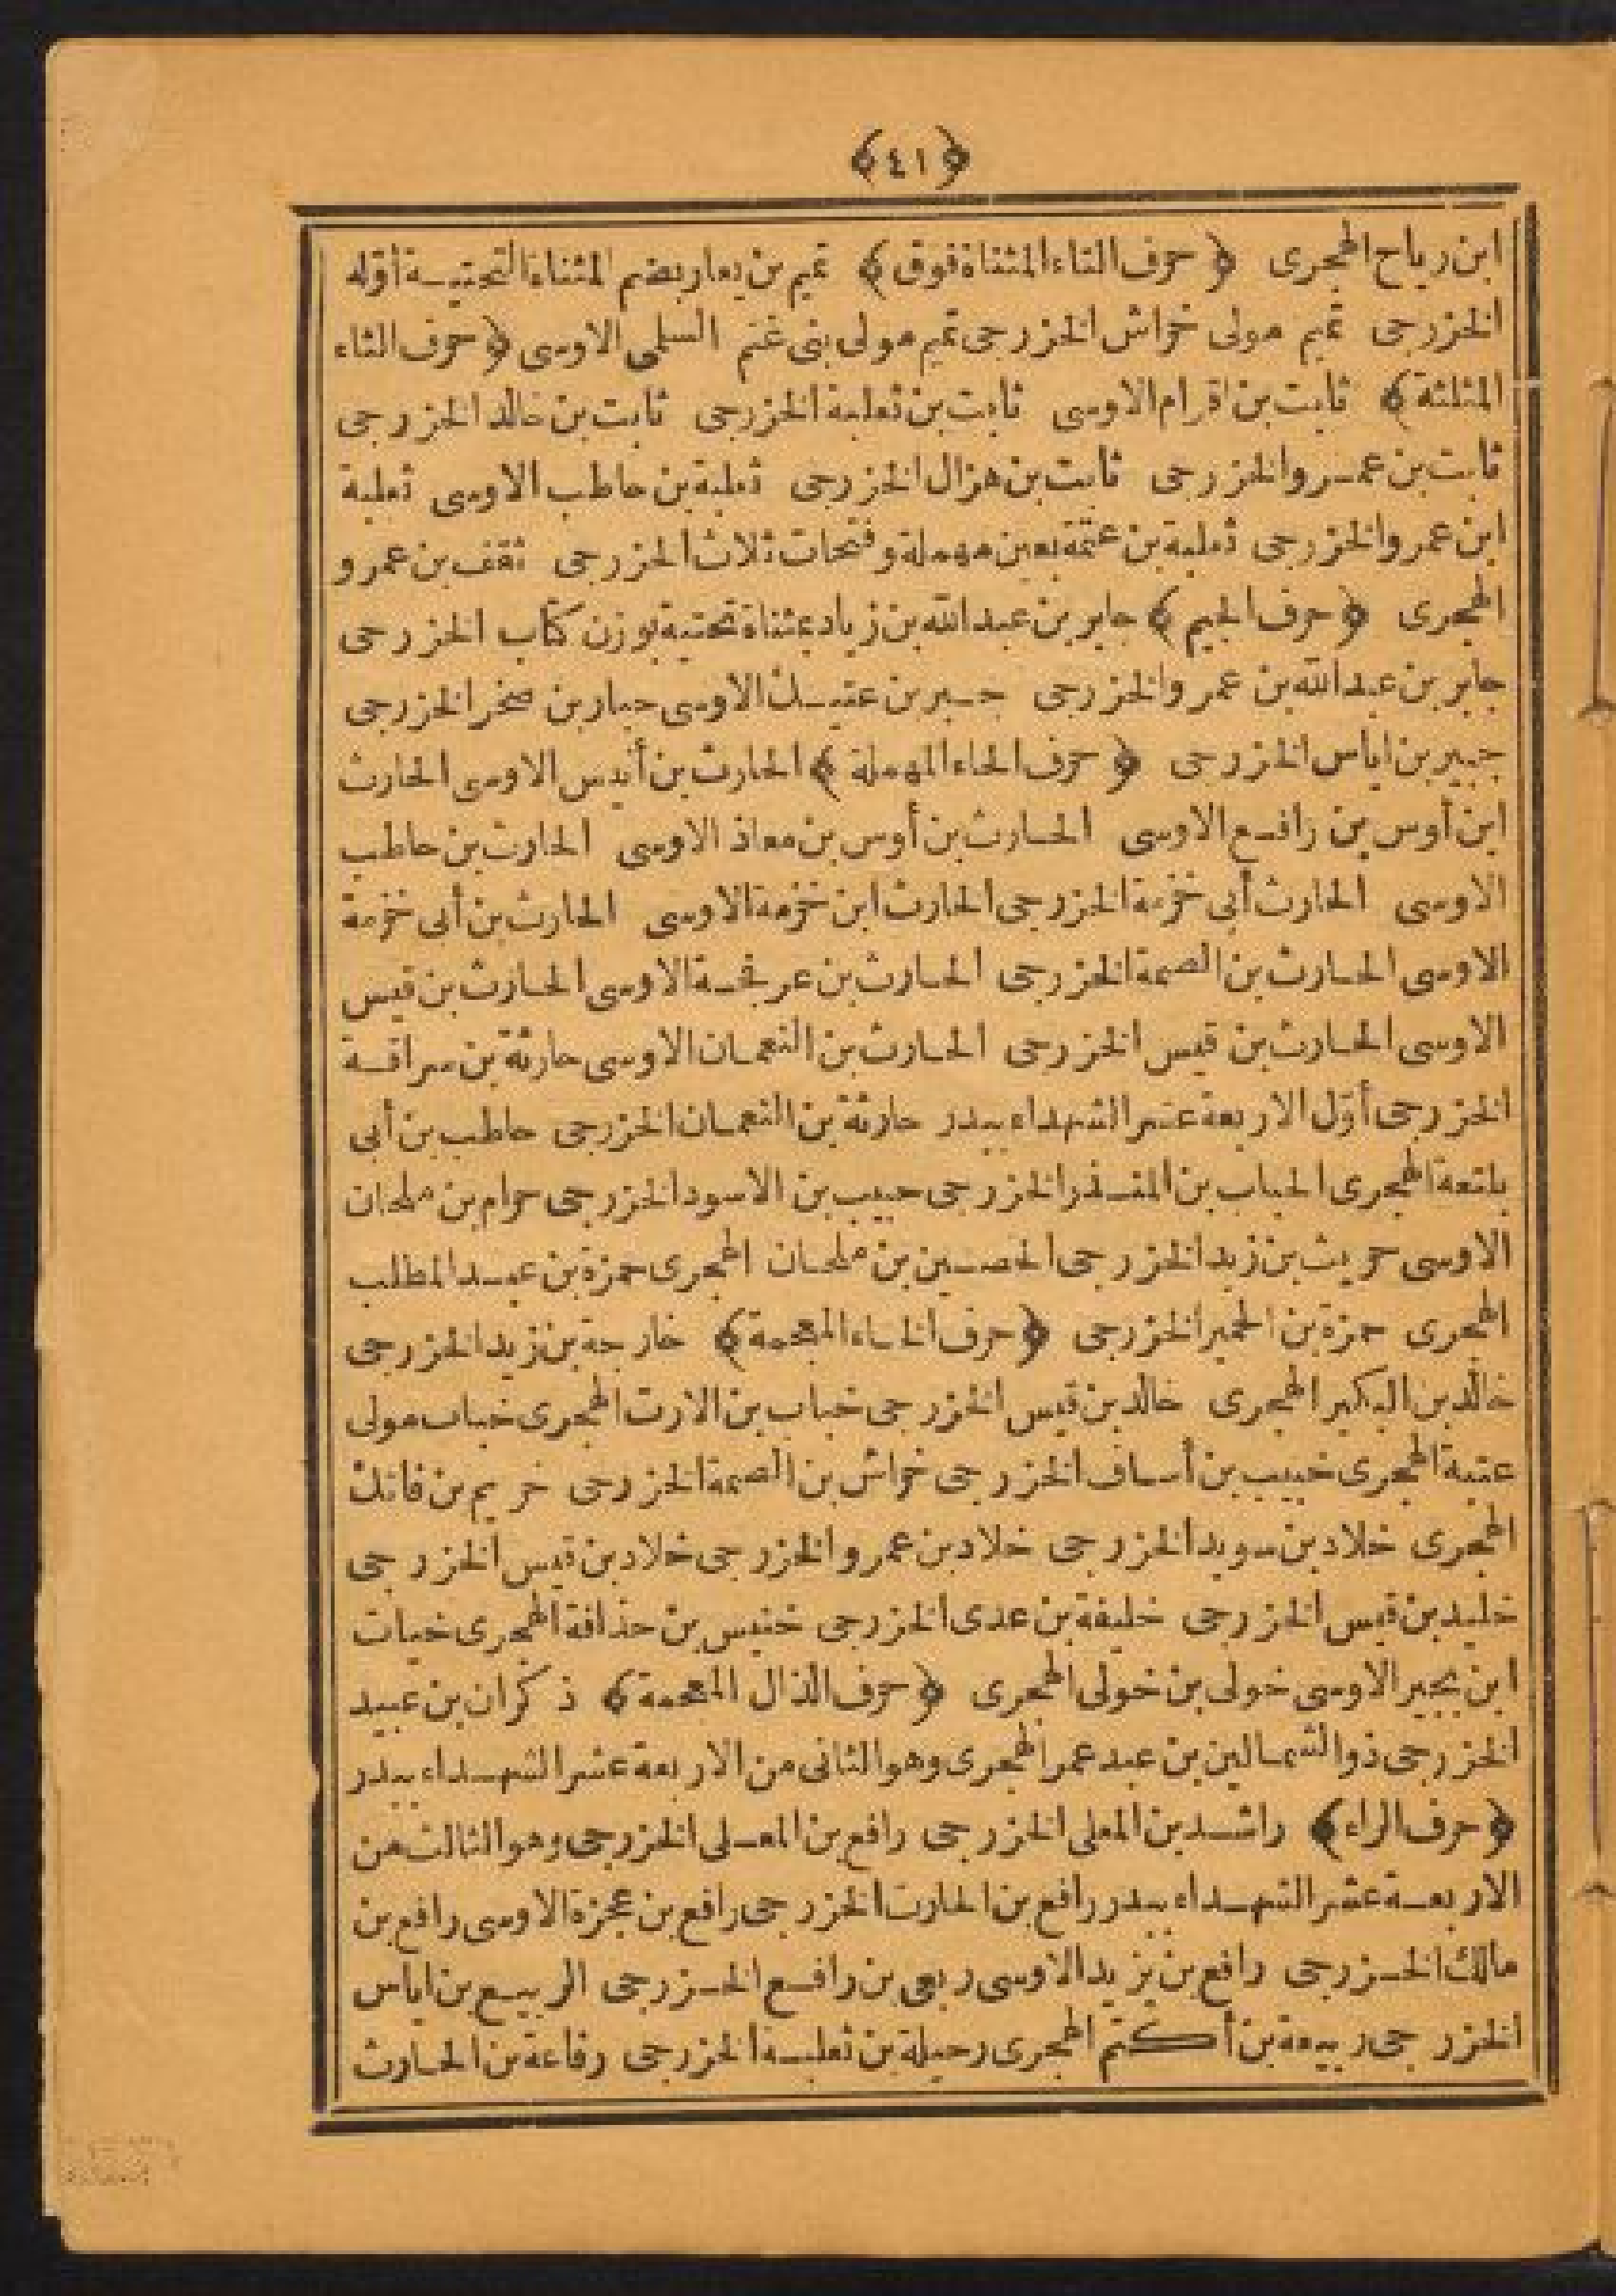 ﴿٤١﴾
ابن رياح المهجرى ﴿ حرف التاء المثناة فوق ﴾ تميم بن يعار بضم المثناة التحتية أوّله
الخزرجى تميم مولى خراش الخزرجى تميم مولى بنى غنم السلمى الاوسى ﴿ حرف الثاء
المثلثة ﴾ ثابت بن اقرام الاوسى ثابت بن ثعلبة الخزرجى ثابت بن خالد الخزرجى
ثابت بن عمرو الخزرجى ثابت بن هزال الخزرجى ثعلبة بن حاطب الاوسى ثعلبة
ابن عمرو الخزرجى ثعلبة بن عتمة بعين مهملة وفتحات ثلاث الخزرجى ثقف بن عمرو
المهجرى ﴿ حرف الجيم ﴾ جابر بن عبد الله بن زياد بمثناة تحتية بوزن كتاب الخزرجى
جابر بن عبد الله بن عمرو الخزرجى جبر بن عتيك الاوسى جبار بن صخر الخزرجى
جبير بن اياس الخزرجى ﴿ حرف الحاء المهملة ﴾ الحارث بن أنيس الاوسى الحارث
ابن أوس بن رافع الاوسى الحارث بن أوس بن معاذ الاوسى الحارث بن حاطب
الاوسى الحارث أبى خزمة الخزرجى الحارث ابن خزمة الاوسى الحارث بن أبى خزمة
الاوسى الحارث بن الصمة الخزرجى الحارث بن عرفجة الاوسى الحارث بن قيس
الاوسى الحارث بن قيس الخزرجى الحارث بن النعمان الاوسى حارثة بن سراقة
الخزرجى أوّل الاربعة عشر الشهداء ببدر حارثة بن النعمان الخزرجى حاطب بن أبى
بلتعة المهجرى الحباب بن المنذر الخزرجى حبيب بن الاسود الخزرجى حرام بن ملحان
الاوسى حريث بن زيد الخزرجى الحصين بن ملحان المهجرى حمزة بن عبد المطلب
المهجرى حمزة بن الحمير الخزرجى ﴿ حرف الخاء المعجمة ﴾ خارجة بن زيد الخزرجى
خالد بن البكير المهجرى خالد بن قيس الخزرجى خباب بن الارت المهجرى خباب مولى
عتبة المهجرى خبيب بن أساف الخزرجى خراش بن الصمة الخزرجى خريم بن فاتك
المهجرى خلاد بن سويد الخزرجى خلاد بن عمرو الخزرجى خلاد بن قيس الخزرجى
خليد بن قيس الخزرجى خليفة بن عدى الخزرجى خنيس بن حذافة المهجرى خبات
ابن بجبير الاوسى خولى بن خولى المهجرى ﴿ حرف الذال المعجمة ﴾ ذكران بن عبيد
الخزرجى ذو الشمالين بن عبد عمر المهجرى وهو الثانى من الاربعة عشر الشهداء ببدر
﴿ حرف الراء ﴾ راشد بن المعلى الخزرجى رافع بن المعلى الخزرجى وهو الثالث من
الاربعة عشر الشهداء ببدر رافع بن الحارث الخزرجى رافع بن عنجزة الاوسى رافع بن
مالك الخزرجى رافع بن يزيد الاوسى ربعى بن رافع الخزرجى الربيع بن اياس
الخزرجى ربيعة بن أكتم المهجرى رحيلة بن ثعلبة الخزرجى رفاعة بن الحارث